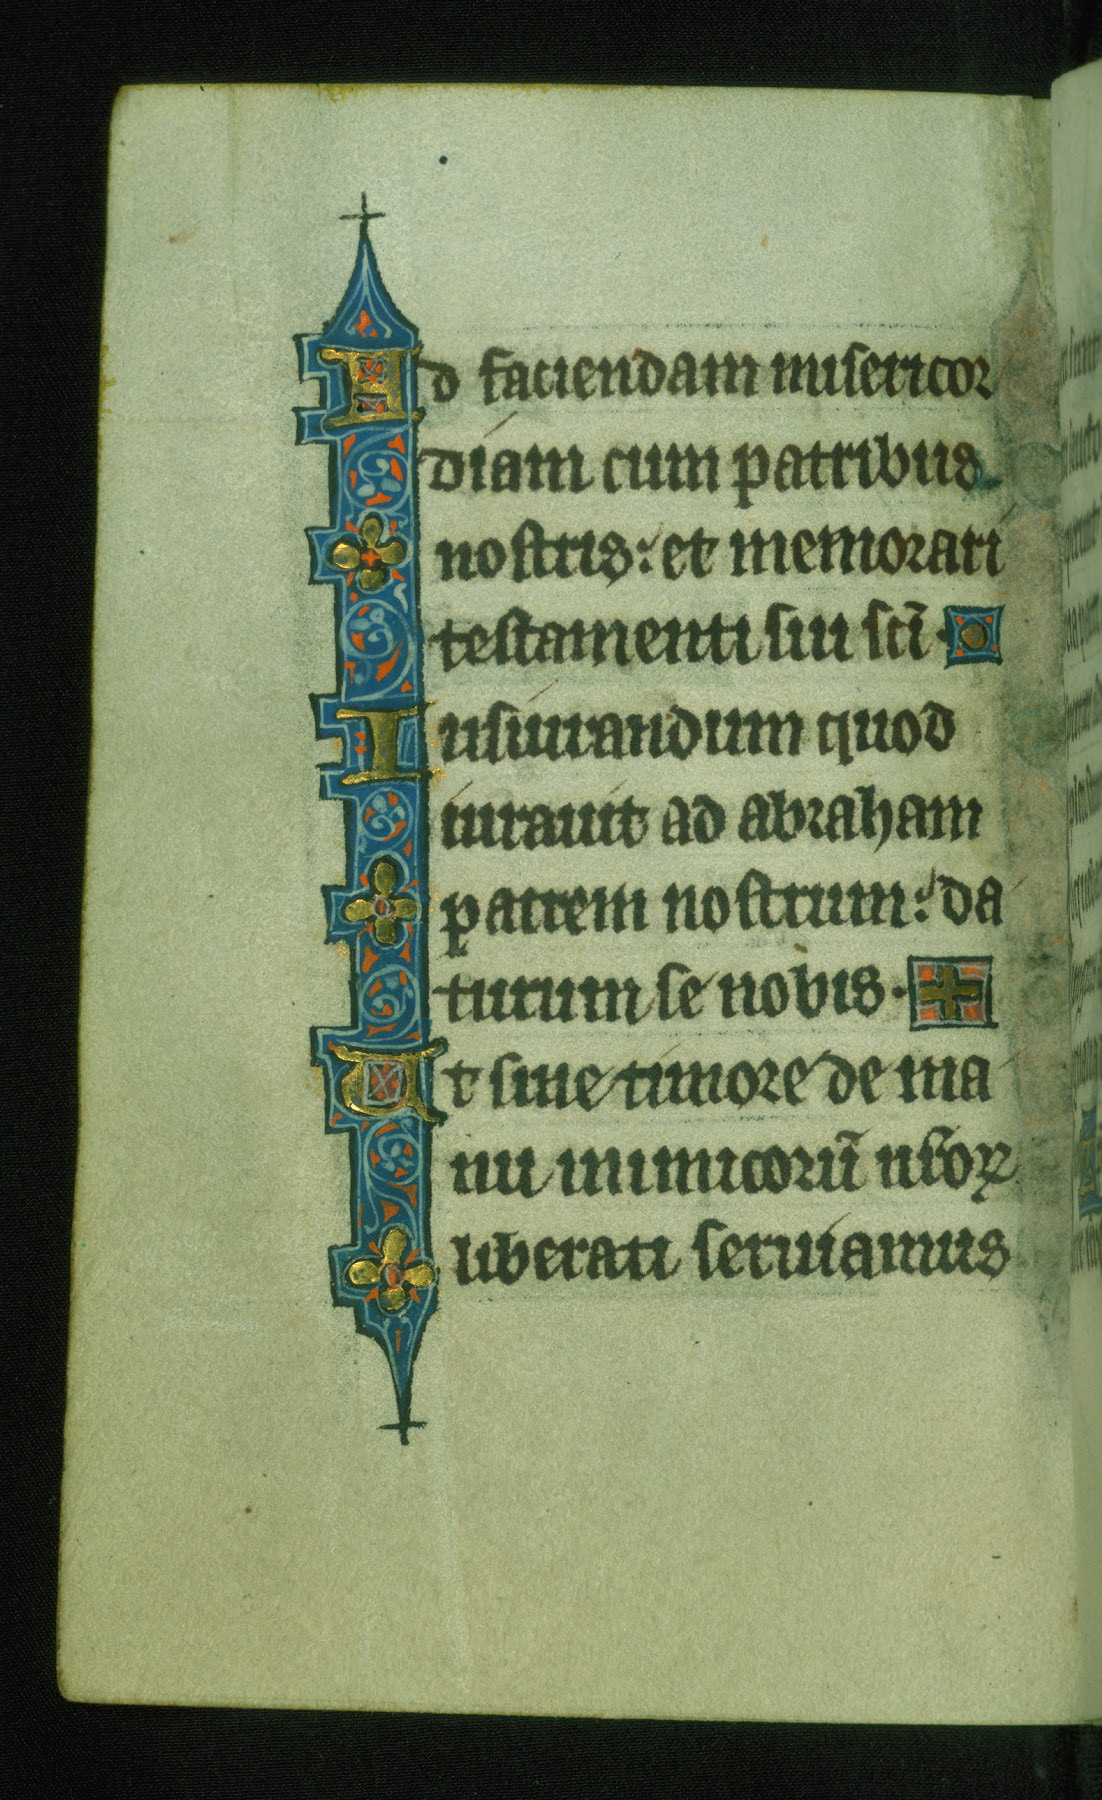 Ad faciendam misericor
diam cum patribus
nostris: et memorari
testamenti sui sc̄i.
Iusiurandum quod
iurauit ad abraham
patrem nostrum: da
turum se nobis.
Ut sine timore de ma
nu inimicorū nr̄oꝝ
liberati seruiamus